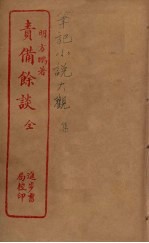 記小說大觀
明方鵬著
責備餘談 全
進步書
局校印